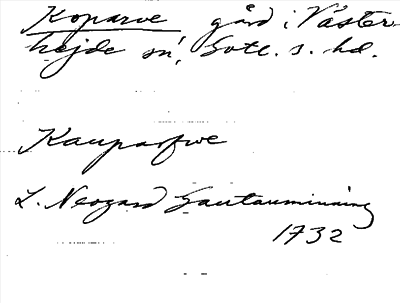 Koparve gård i Väster-
hejde sn, Gotl. s. hd.
Kauparfwe
L. Neogard Gautauminning
1732